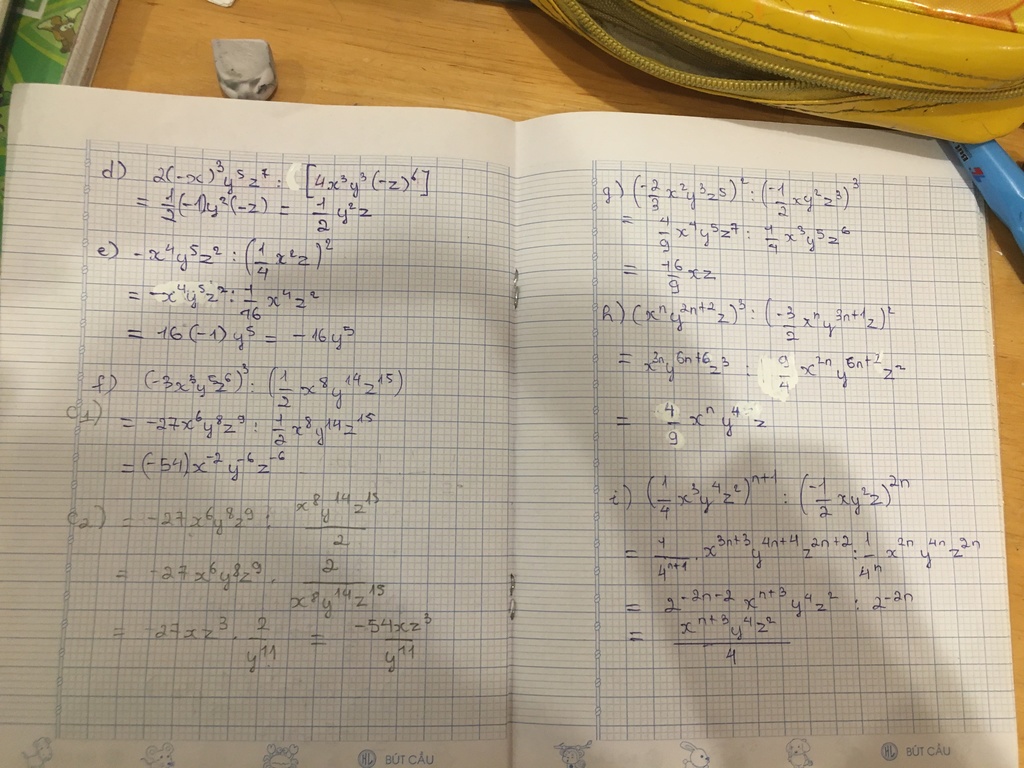 d) 2(-x)³y⁵z⁷ : [4x³y³(-z)⁶]
= 1/2(-1)y²(-z) = 1/2 y²z
e) -x⁴y⁵z² : (1/4 x²z)²
= -x⁴y⁵z² : 1/16 x⁴z²
= 16(-1)y⁵ = -16y⁵
f) (-3x³y⁵z⁶)³ : (1/2 x⁸y¹⁴z¹⁵)
C1) = -27x⁶y⁸z⁹ : 1/2 x⁸y¹⁴z¹⁵
= (-54)x⁻²y⁻⁶z⁻⁶
C2) = -27x⁶y⁸z⁹ : x⁸y¹⁴z¹⁵/2
= -27x⁶y⁸z⁹ . 2/x⁸y¹⁴z¹⁵
= -27xz³ . 2/y¹¹ = -54xz³/y¹¹
BÚT CÂU
g) (-2/3 x²y³z⁵)² : (-1/2 xy²z³)³
= 4/9 x⁴y⁵z⁷ : 1/4 x³y⁵z⁶
= 16/9 xz
h) (xⁿy²ⁿ⁺²z)³ : (-3/2 xⁿy³ⁿ⁺¹z)²
= x³ⁿy⁶ⁿ⁺⁶z³ : 9/4 x²ⁿy⁶ⁿ⁺²z²
= 4/9 xⁿy⁴z
i) (1/4 x³y⁴z²)ⁿ⁺¹ : (-1/2 xy²z)²ⁿ
= 1/4ⁿ⁺¹ . x³ⁿ⁺³y⁴ⁿ⁺⁴z²ⁿ⁺² : 1/4ⁿ x²ⁿy⁴ⁿz²ⁿ
= 2⁻²ⁿ⁻² xⁿ⁺³y⁴z² : 2⁻²ⁿ
= xⁿ⁺³y⁴z²/4
HL BÚT CÂU